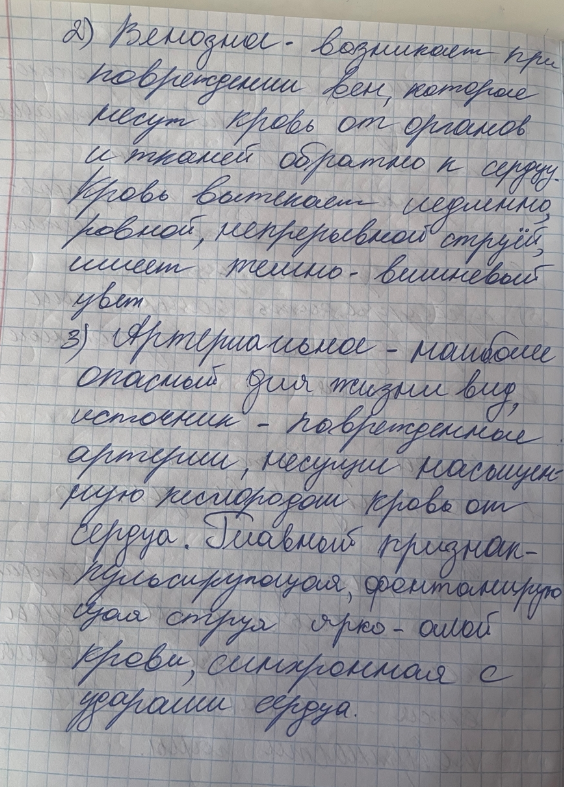 2) Венозное - возникает при
повреждении вен, которые
несут кровь от органов
и тканей обратно к сердцу.
Кровь вытекает медленно,
ровной, непрерывной струёй,
имеет темно-вишневый
цвет
3) Артериальное - наиболее
опасный для жизни вид,
источник - поврежденные
артерии, несущие насыщен-
ную кислородом кровь от
сердца. Главный признак-
пульсирующая, фонтанирую
щая струя ярко-алой
крови, синхронная с
ударами сердца.